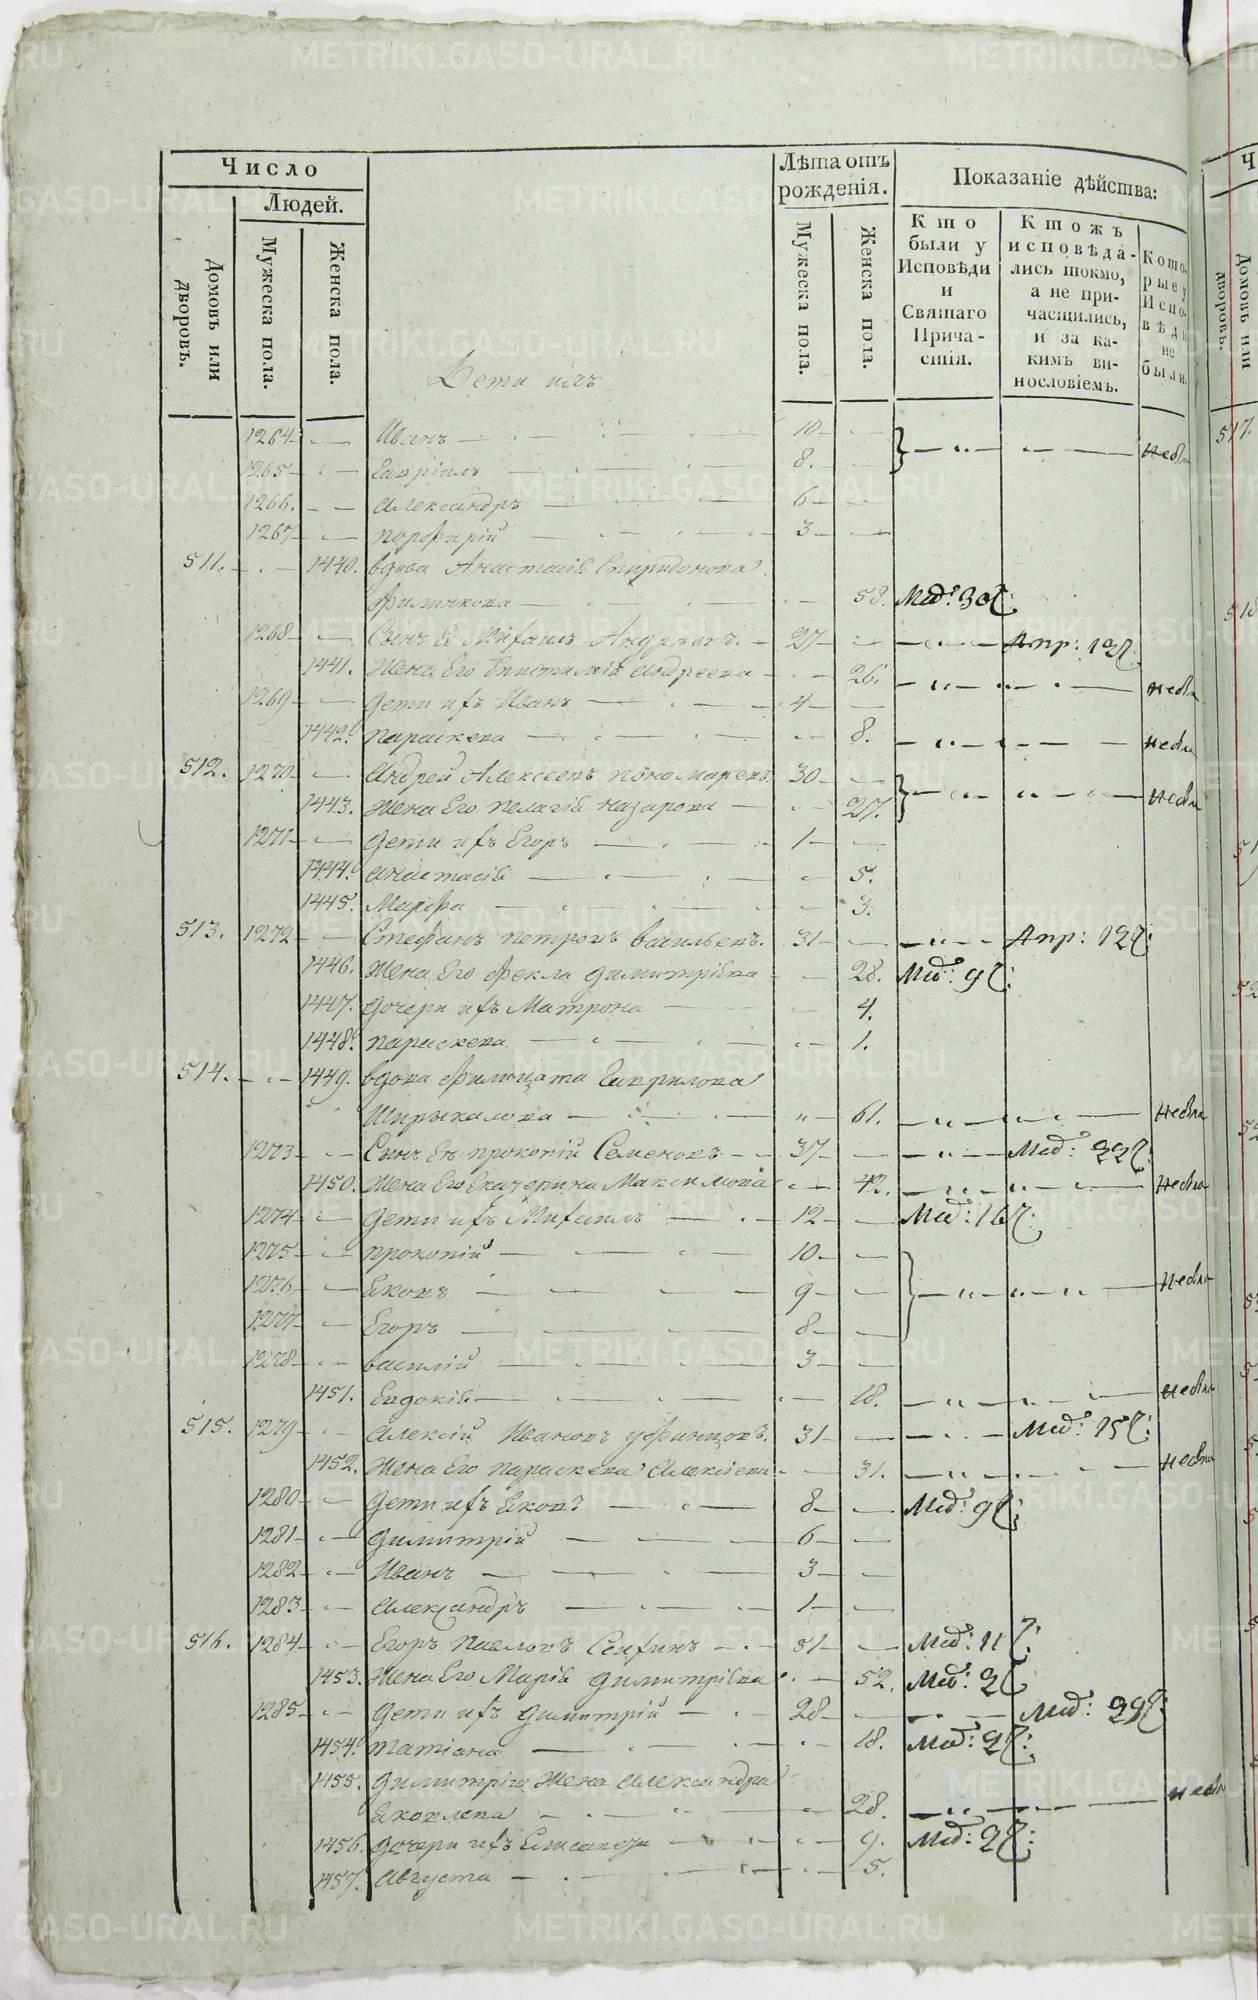 Число
Людей.
Домовъ или дворовъ.
Мужеска пола.
Женска пола.
Лѣта отъ рожденія.
Мужеска пола.
Женска пола.
Показаніе дѣйства:
Кто были у Исповѣди и Святаго Прича-стія.
Ктожъ исповѣда-лись токмо, а не при-частились, и за ка-кимъ ви-нословіемъ.
Кото-рые у Испо-вѣди не были.
Дети ихъ
1264 Иванъ 10
1265 Гавріилъ 8. небы
1266. Александръ 6
1267 Порфирій 3
511. 1440. вдова Анастасія Спиридонова
Филинкова 58.
1268 Сынъ Ея Михаилъ Андреевъ. 27 Апр: 13
1441. Жена Его Епистимія Андреева 26. небы
1269 Дети ихъ Иванъ 4
1442. Параскева 8. небы
512. 1270 Андрей Алексеевъ Пономаревъ 30
1443. Жена Его Пелагія Назарова 27. небы
1271 Дети ихъ Егоръ 1
1444. Анастасія 5.
1445. Марфа 3.
513. 1272 Стефанъ Петровъ Васильевъ. 31 Апр: 12
1446. Жена Его Фекла Димитріева 28. 9
1447. Дочери ихъ Матрона 4.
1448. Параскева 1.
514. 1449. вдова Филицата Гаврилова
Ширыкалова 61. небы
1273 Сынъ Ея Прокопій Семеновъ 37
1450. Жена Его Екатерина Максимова 42. небы
1274 Дети ихъ Михаилъ 12 16
1275 Прокопій 10
1276 Яковъ 9 небы
1277 Егоръ 8
1278 Василій 3
1451. Евдокія 18. небы
515. 1279 Алексій Ивановъ Уфинцовъ. 31 15
1452. Жена Его Параскева Алексіева 31. небы
1280 Дети ихъ Яковъ 8 9
1281 Димитрій 6
1282 Иванъ 3
1283 Александръ 1
516. 1284 Егоръ Павловъ 51 11
1453. Жена Его Марія Димитріева 52.
1285 Дети ихъ Димитрій 28
1454. Татіана 18.
1455. Димитрія Жена Александра
Яковлева 28. небы
1456. Дочери ихъ Елисавета 9.
1457. Августа 5.
METRIKI.GASO-URAL.RU